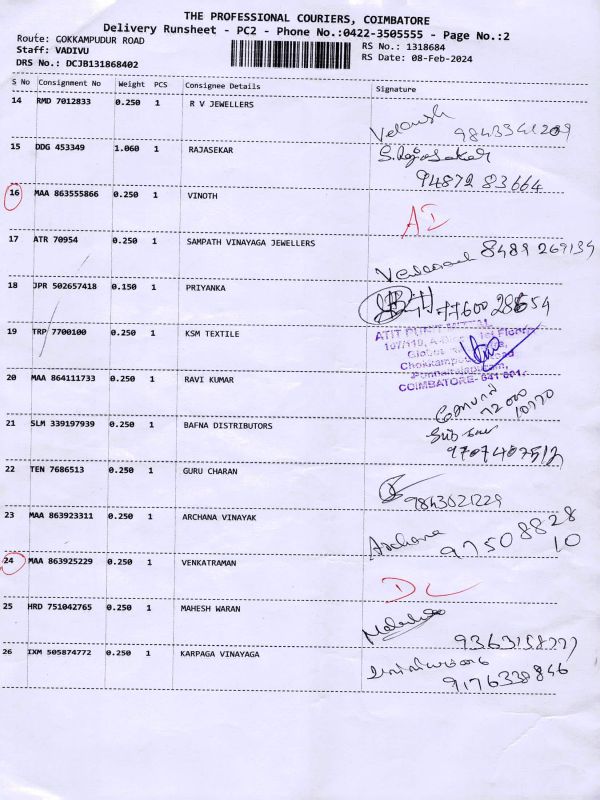 THE PROFESSIONAL COURIERS, COIMBATORE
Delivery Runsheet - PC2 - Phone No.:0422-3505555 - Page No.:2
Route: GOKKAMPUDUR ROAD RS No.: 1318684
Staff: VADIVU RS Date: 08-Feb-2024
DRS No.: DCJB131868402
S No Consignment No Weight PCS Consignee Details Signature
14 RMD 7012833 0.250 1 R V JEWELLERS
9843341209
15 DDG 453349 1.060 1 RAJASEKAR S. Rajasekar
94872 83664
16 MAA 863555866 0.250 1 VINOTH
AI
17 ATR 70954 0.250 1 SAMPATH VINAYAGA JEWELLERS 8489 269134
18 JPR 502657418 0.150 1 PRIYANKA
19 TRP 7700100 0.250 1 KSM TEXTILE
COIMBATORE-
20 MAA 864111733 0.250 1 RAVI KUMAR
72000
10770
21 SLM 339197939 0.250 1 BAFNA DISTRIBUTORS
9707407512
22 TEN 7686513 0.250 1 GURU CHARAN
9843021229
23 MAA 863923311 0.250 1 ARCHANA VINAYAK
Archana 97508828
10
24 MAA 863925229 0.250 1 VENKATRAMAN
DL
25 HRD 751042765 0.250 1 MAHESH WARAN
26 IXM 505874772 0.250 1 KARPAGA VINAYAGA
9176338846